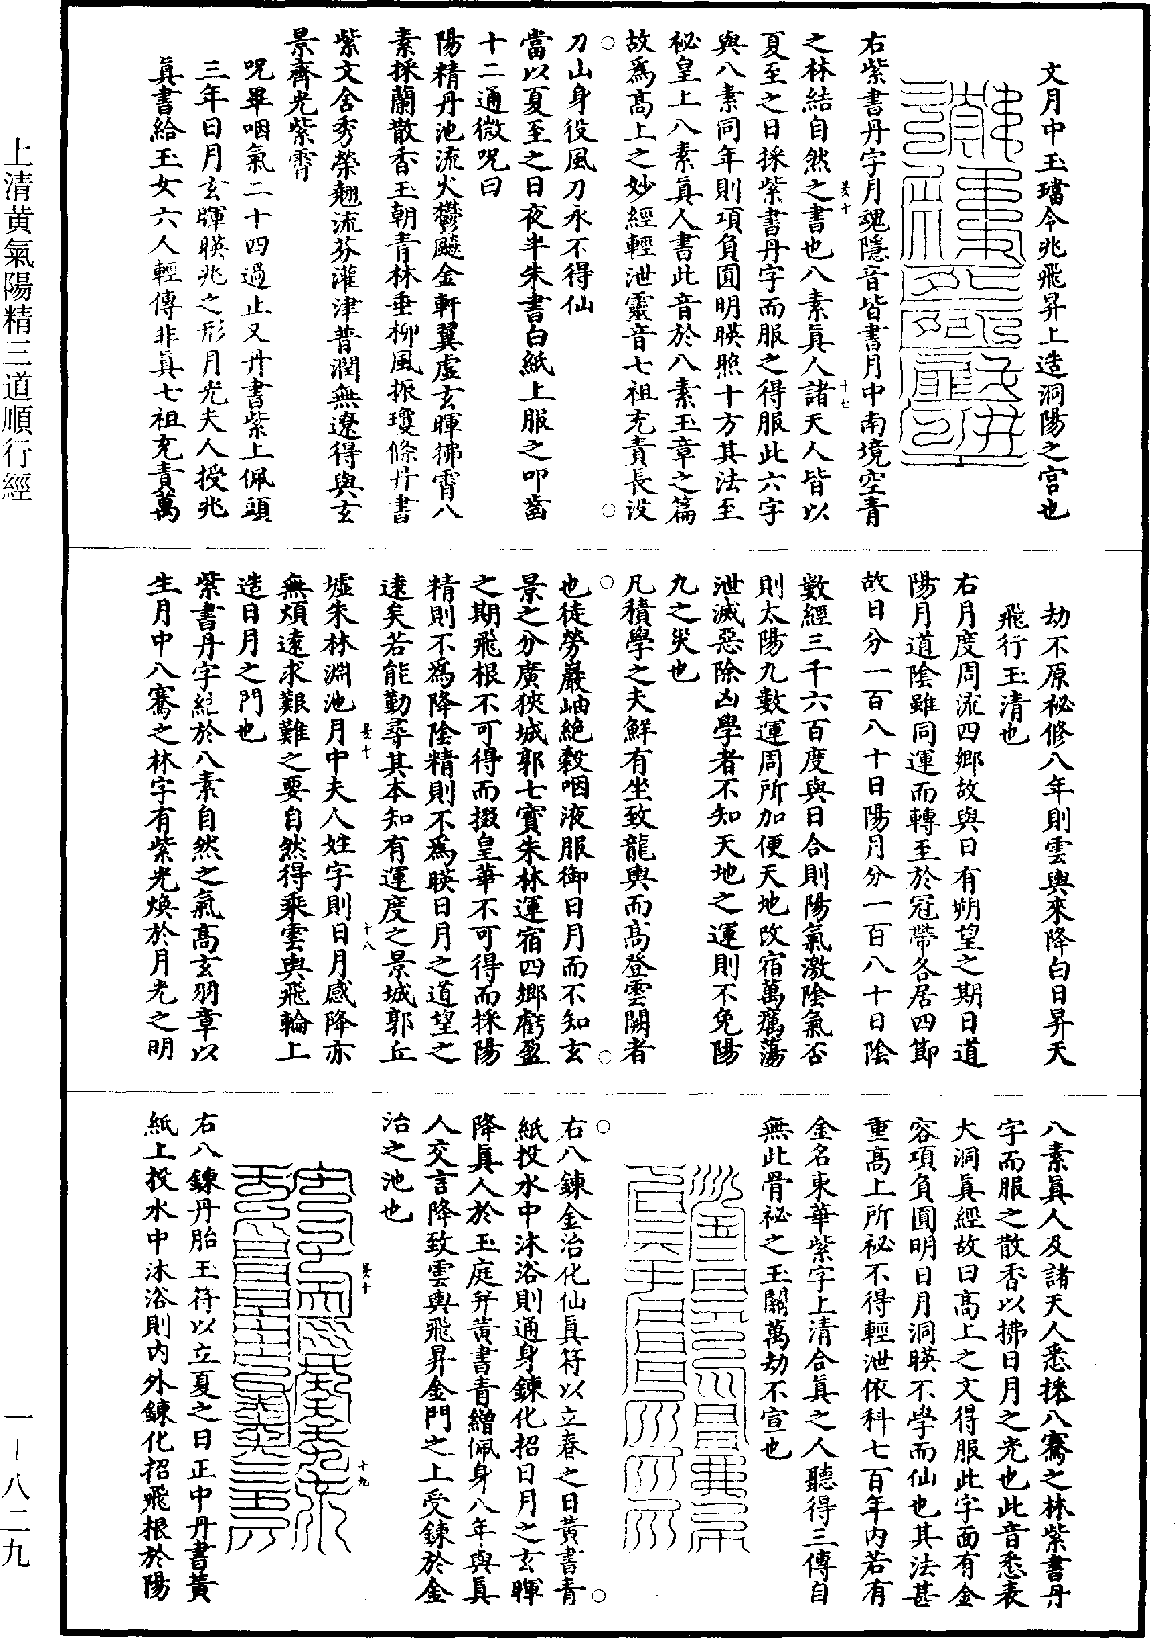 文月中玉璫今兆飛昇上造洞陽之宮也
右紫書丹字月魂隱音皆書月中南境空青
之林結自然之書也八素真人諸天人皆以
夏至之日採紫書丹字而服之得服此六字
與八素同年則項負圓明暎照十方其法至
祕皇上八素真人書此音於八素玉章之篇
故為高上之妙經輕泄靈音七祖充責長沒
刀山身役風刀永不得仙
當以夏至之日夜半朱書白紙上服之叩齒
十二通微呪曰
陽精丹池流火欝飈金軒翼虛玄暉拂霄八
素採蘭散香玉朝青林垂柳風振瓊條丹書
紫文含秀榮翹流芬灌津普潤無遼得與玄
景齊光紫霄
呪畢咽氣二十四過止又丹書紫上佩頭
三年日月玄暉暎兆之形月光夫人授兆
真書給玉女六人輕傳非真七祖充責萬
劫不原祕修八年則雲輿來降白日昇天
飛行玉清也
右月度周流四鄉故與日有朔望之期日道
陽月道陰雖同運而轉至於冠帶各居四節
故日分一百八十日陽月分一百八十日陰
數經三千六百度與日合則陽氣激陰氣否
則太陽九數運周所加便天地改宿萬癘蕩
泄滅惡除凶學者不知天地之運則不免陽
九之災也
凡積學之夫鮮有坐致龍輿而高登雲闕者
也徒勞巖岫絕穀咽液服御日月而不知玄
景之分廣狹城郭七寶朱林運宿四鄉虧盈
之期飛根不可得而掇皇華不可得而採陽
精則不為降陰精則不為暎日月之道望之
遠矣若能勤尋其本知有運度之景城郭丘
墟朱林淵池月中夫人姓字則日月感降亦
無煩遠求艱難之要自然得乘雲輿飛輪上
造日月之門也
紫書丹字結於八素自然之氣高玄羽章以
生月中八騫之林字有紫光煥於月光之明
八素真人及諸天人悉採八騫之林紫書丹
字而服之散香以拂日月之光也此音悉表
大洞真經故曰高上之文得服此字面有金
容項負圓明日月洞暎不學而仙也其法甚
重高上所祕不得輕泄依科七百年內若有
金名東華紫字上清合真之人聽得三傳自
無此骨祕之玉關萬劫不宣也
右八鍊金治化仙真符以立春之日黃書青
紙投水中沐浴則通身鍊化招日月之玄暉
降真人於玉庭并黃書青繒佩身八年與真
人交言降致雲輿飛昇金門之上受鍊於金
治之池也
右八鍊丹胎玉符以立夏之日正中丹書黃
紙上投水中沐浴則內外鍊化招飛根於陽
上清黃氣陽精三道順行經
一—八二九